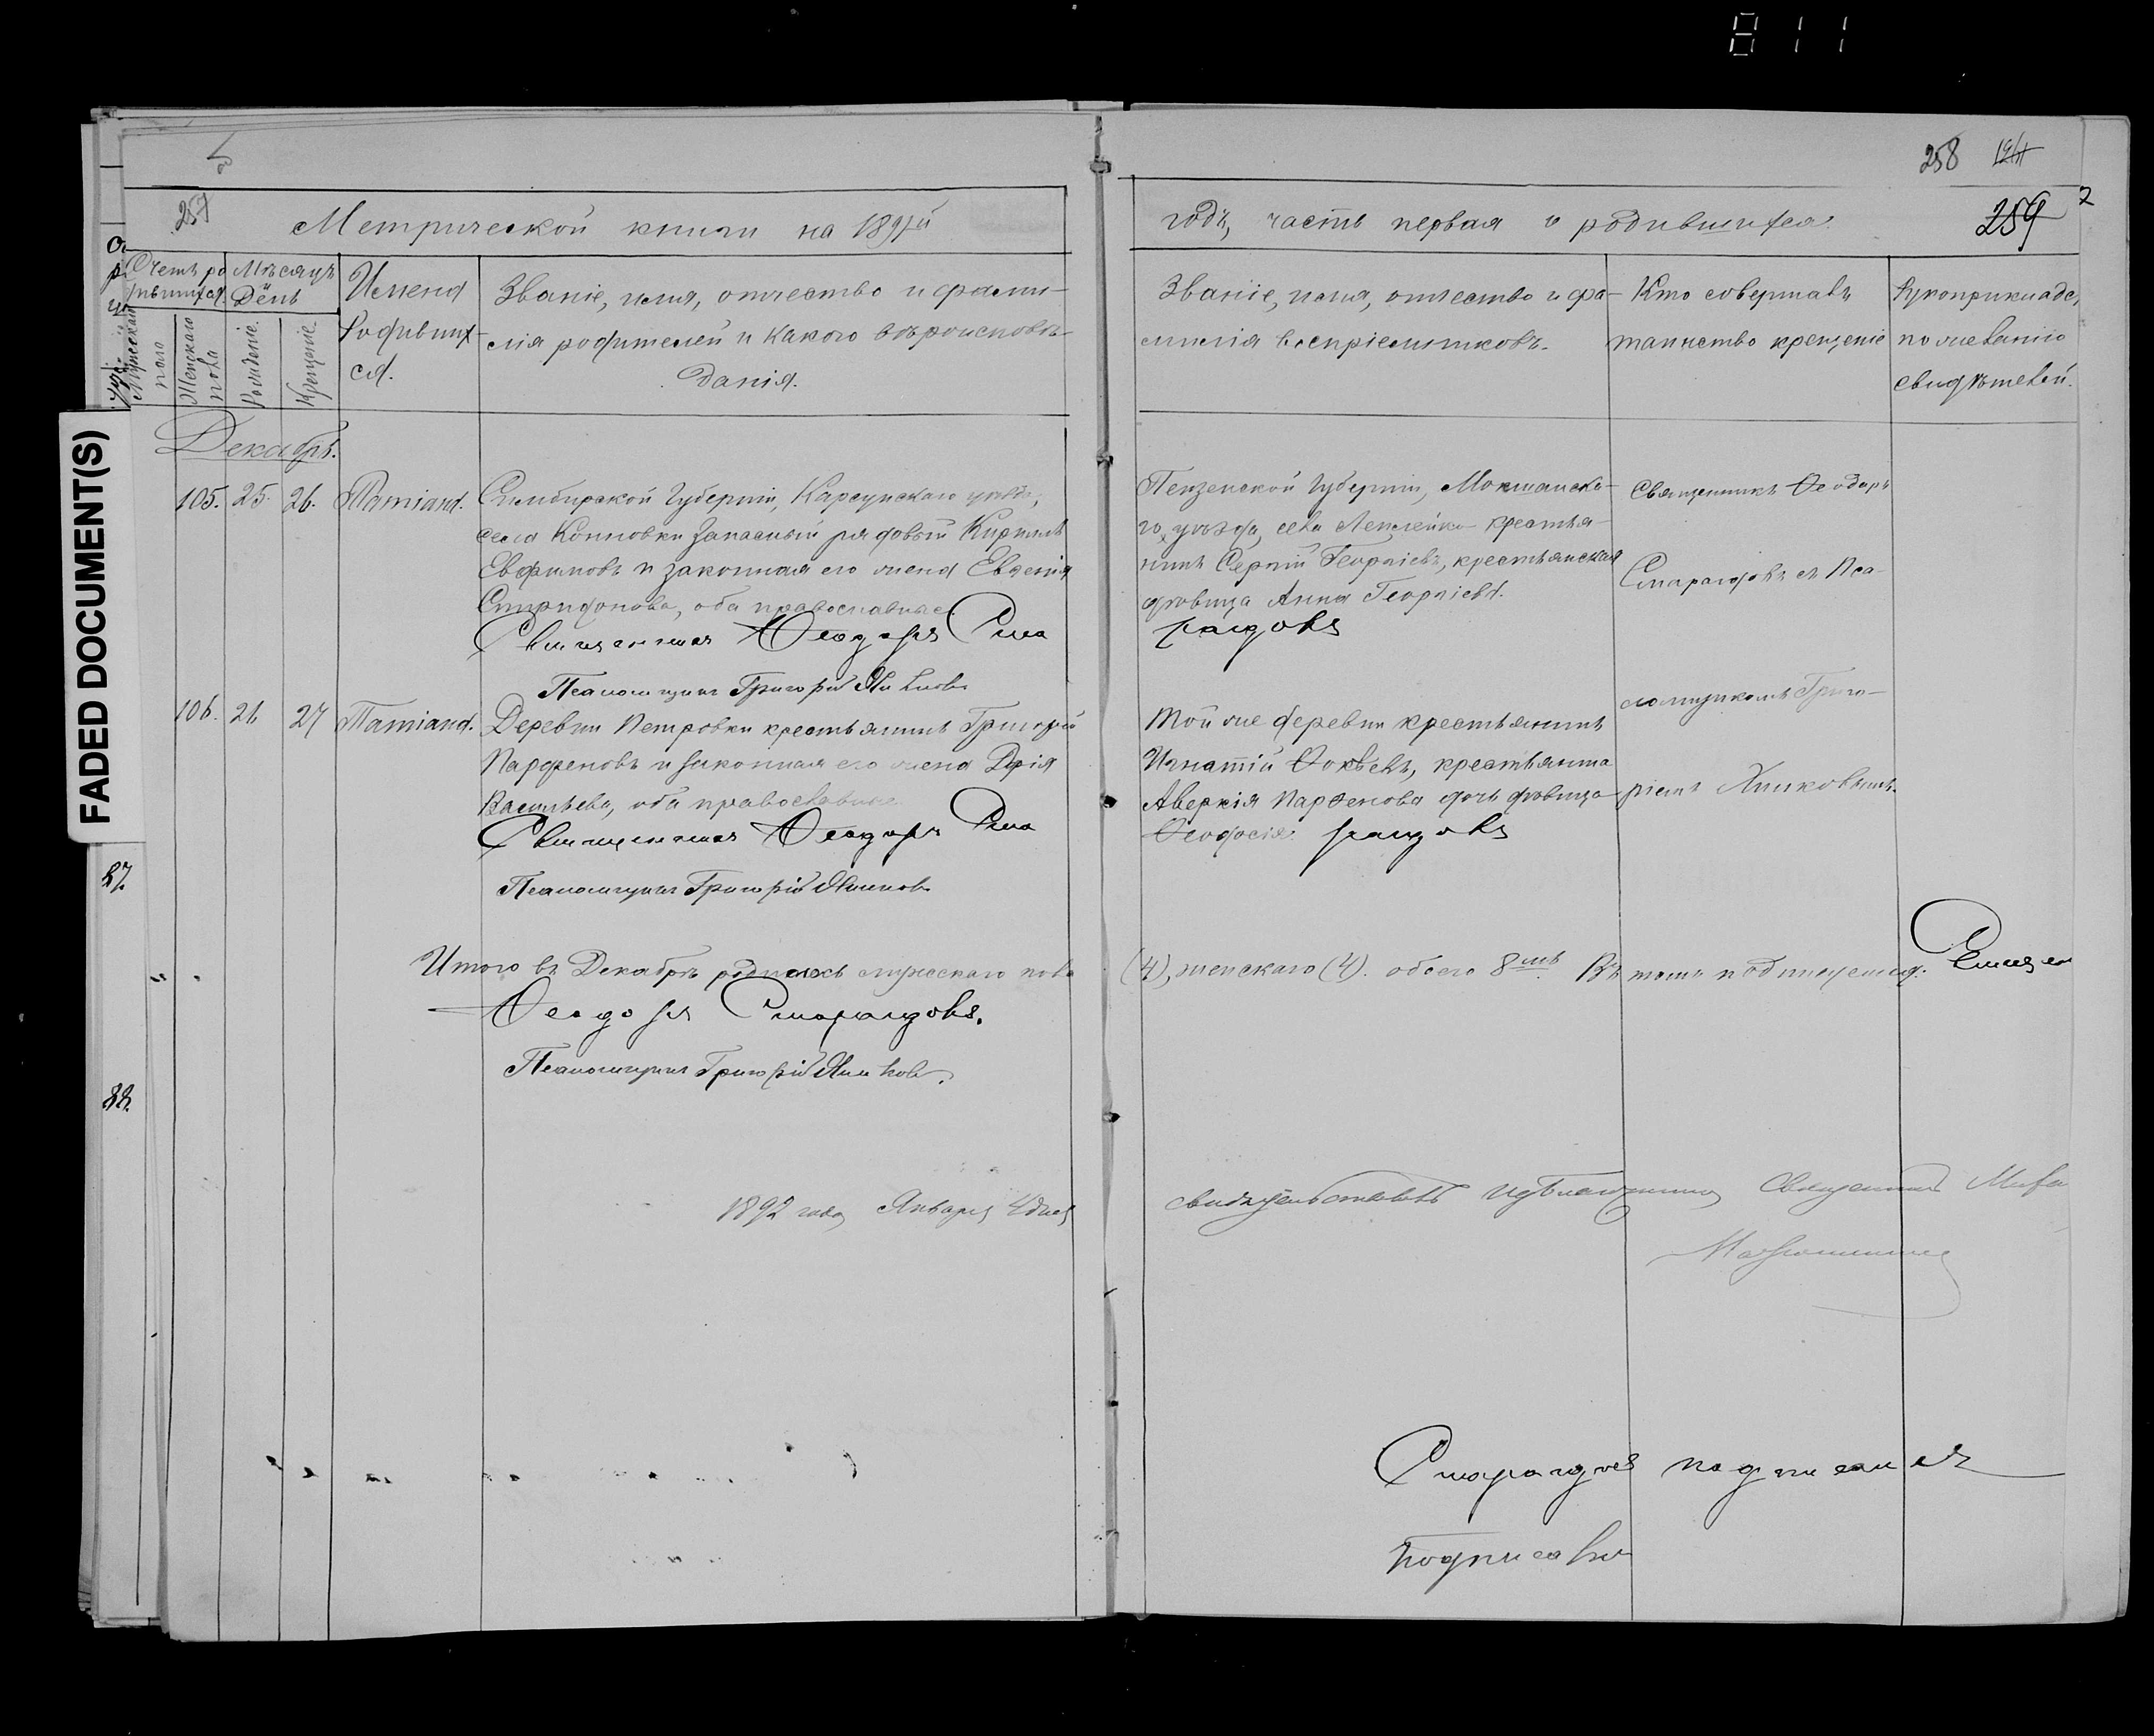 811
FADED DOCUMENT(S)
258
259
2
257
Метрической книги на 1891й
годъ, часть первая о родившихся.
Счетъ ро
дившихся.
Мѣсяцъ
День
Мужескаго
пола
Женскаго
пола
Рожденіе.
Крещеніе.
Имена
Родивших-
ся.
Званіе, имя, отчество и фами-
лія родителей и какого вѣроисповѣ-
данія.
Званіе, имя, отчество и фа-
милія воспріемниковъ.
Кто совершалъ
таинство крещеніе
Рукоприкладс,
по желанію
свидѣтелей.
Декабрь.
105. 25. 26. Татіана.
Симбирской Губерніи, Карсунскаго уѣзда,
села Запасный рядовый Кириллъ
Евфимовъ и законная его жена Евгенія
Спиридонова, оба православные.
Священникъ Ѳеодоръ Сма
Псаломщикъ Григорій
Пензенской Губерніи, Мокшанска-
го уѣзда, села крестья-
нинъ Сергій Георгіевъ, крестьянская
дѣвица Анна Георгіева.
рагдовъ
Священникъ Ѳеодоръ
Смарагдовъ съ Пса-
ломщикомъ Григо-
ріемъ
106. 26 27 Татіана.
Деревни Петровки крестьянинъ Григорій
Парфеновъ и законная его жена Дарія
Васильева, оба православные.
Священникъ Ѳеодоръ Сма
Псаломщикъ Григорій
Той же деревни крестьянинъ
Игнатій крестьянина
Аверкія Парфенова дочь дѣвица
Ѳеодосія. рагдовъ
87.
88.
Итого въ Декабрѣ родилось мужескаго пола
(4), женскаго (4). обоего 8мь Въ томъ подпишемся. Священ
Ѳеодоръ Смарагдовъ.
Псаломщикъ Григорій
1892 года Января дня
свидѣтельствовалъ Священникъ
Смарагдовъ подписался
Подписалъ